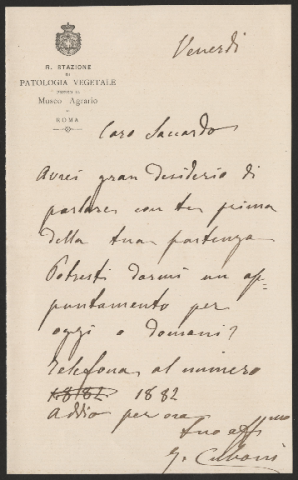 Venerdì
R. STAZIONE
DI
PATOLOGIA VEGETALE
PRESSO IL
Museo Agrario
ROMA
Caro Saccardo
Avrei gran desiderio di
parlare con te prima
della tua partenza
Potresti darmi un ap=
puntamento per
oggi o domani?
Telefona al numero
1882
Addio per ora
tuo aff.mo
G. Cuboni